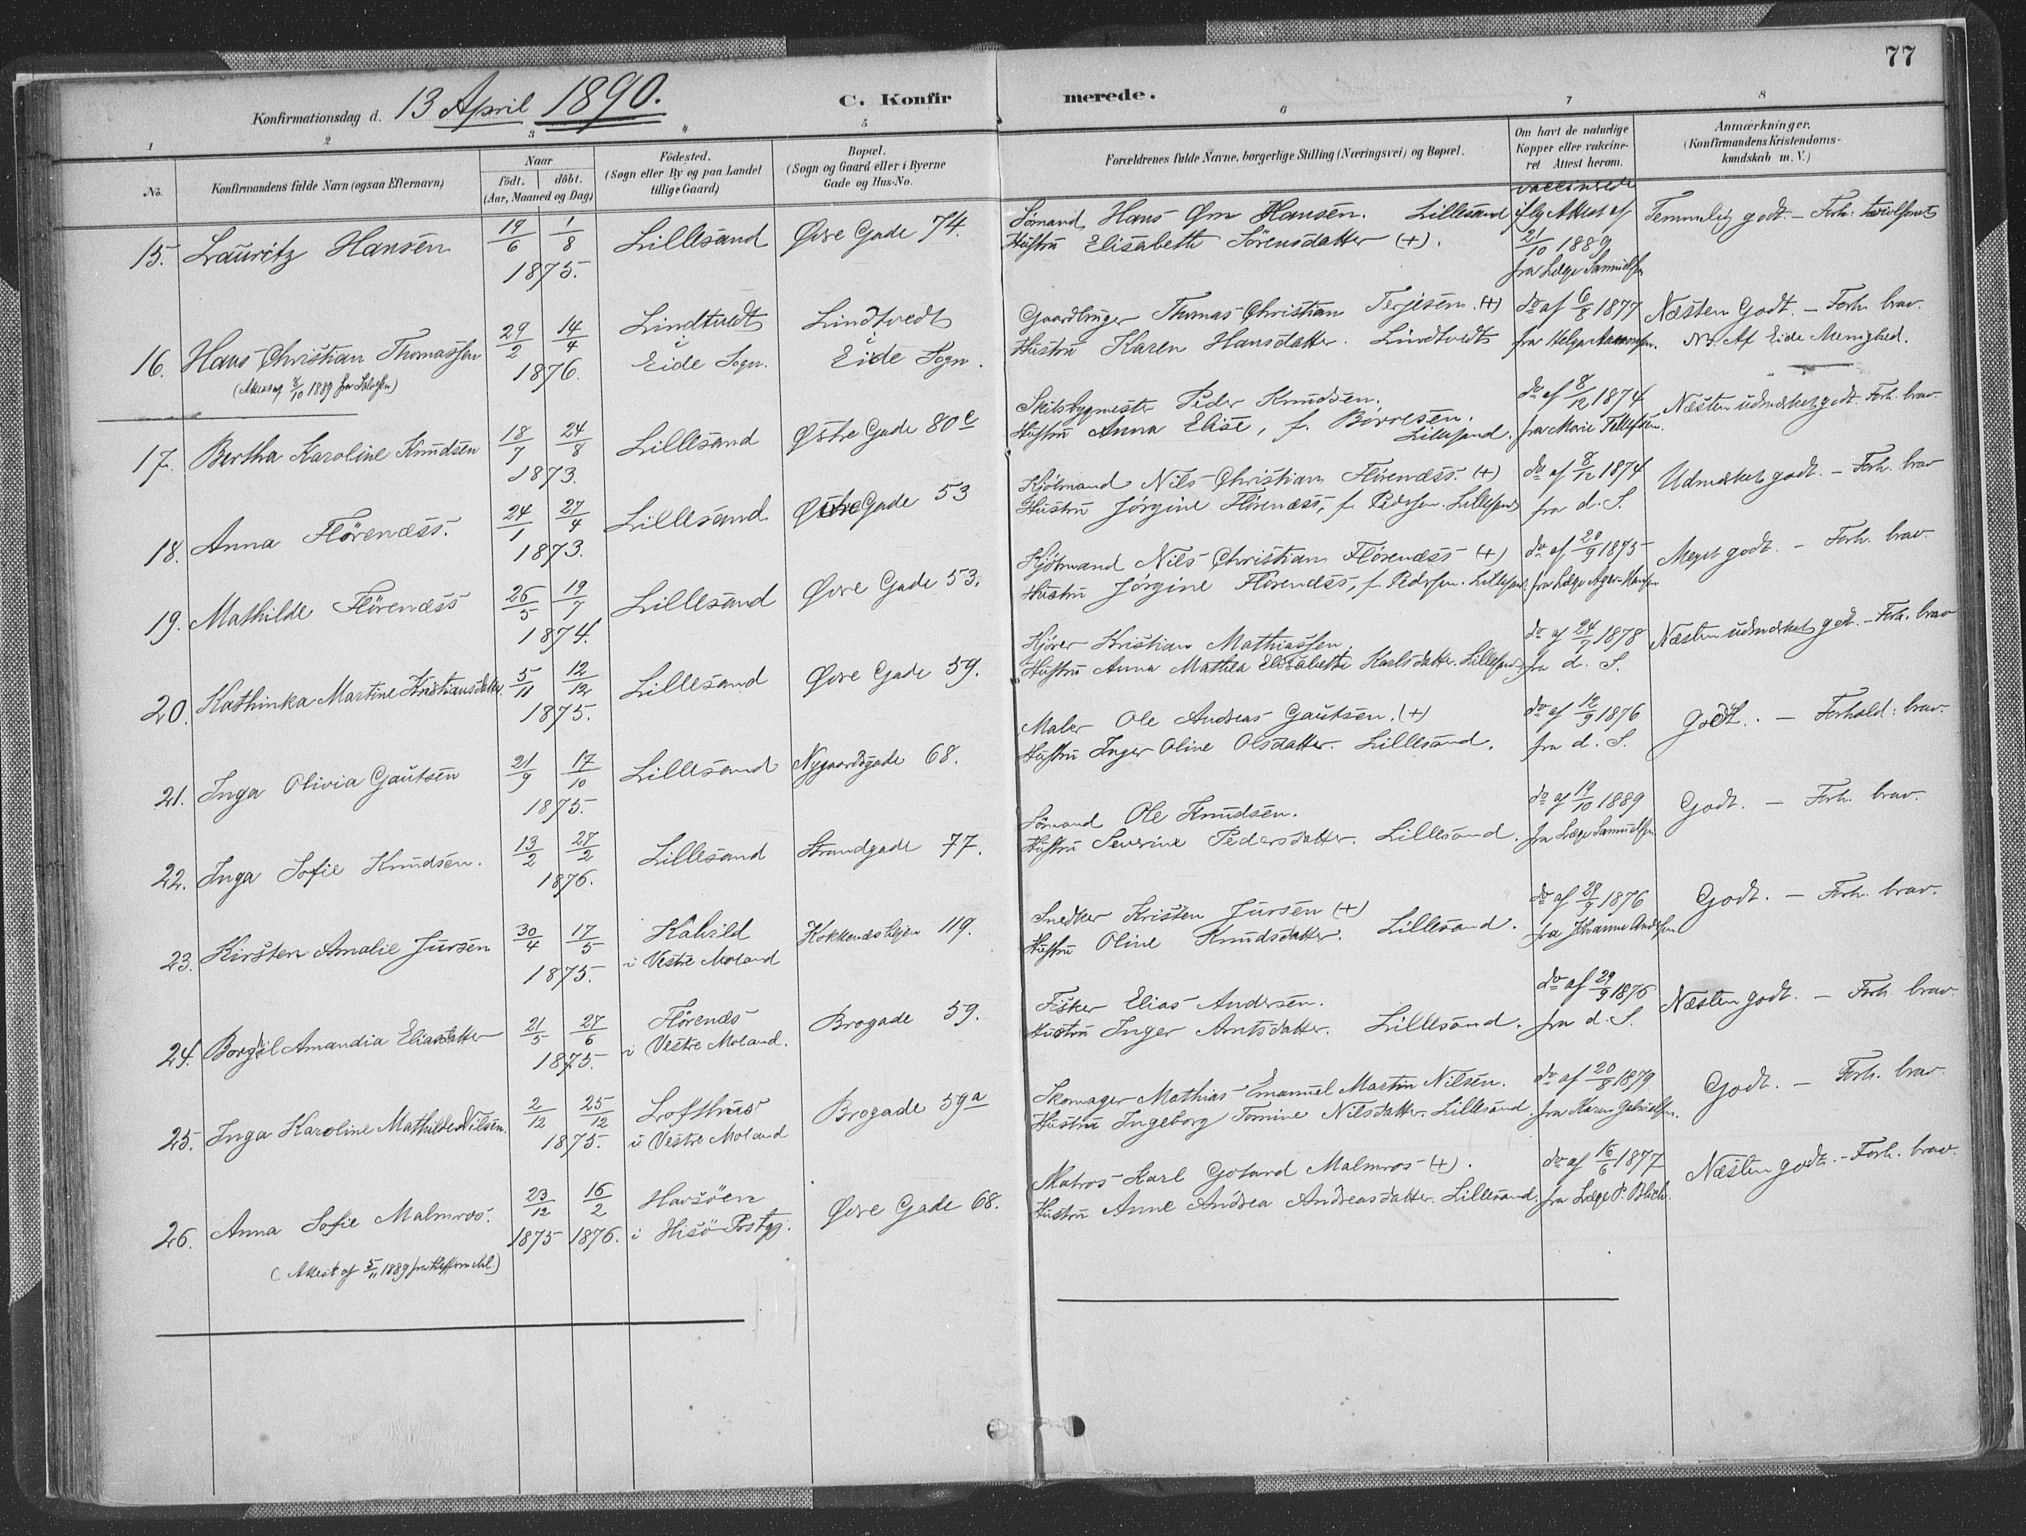 77
Konfirmationsdag d. 13 April 1890. C. Konfirmerede.
1 2 3 4 5 6 7 8
No. Konfirmandens fulde Navn (ogsaa Efternavn)
Naar født. døbt. (Aar, Maaned og Dag)
Fødested. (Sogn eller By og paa Landet tillige Gaard)
Bopæl. (Sogn og Gaard eller i Byerne Gade og Hus-No.
Forældrenes fulde Navne, borgerlige Stilling (Næringsvei) og Bopæl.
Om havt de naturlige Kopper eller vakcineret Attest herom.
Anmærkninger. (Konfirmandens Kristendomskundskab m. V.)
15. Lauritz Hansen 19/6 1/8 1875. Lillesand Øvre Gade 74.
Sömand Hans Øm Hansen. Lillesand
Hustru Elisabeth Sörensdatter (+).
vaccinerede iflg Attest af 21/10 1889 fra Læge Samuelsen
Temmelig godt. – Forh.
16. Hans Christian Thomassen 29/2 14/4 1876. Lindtvedt i Eide Sogn. Lindtvedt Eide Sogn.
(Attest af 8/10 1889 fra)
Gaardbruger Thomas Christian Terjesen (+)
Hustru Karen Hansdatter. Lindtvedt
do af 6/8 1877 fra Helga
Næsten Godt. – Forh. brav.
Nb. Af Eide Menighed.
17. Bertha Karoline Knudsen 18/7 24/8 1873. Lillesand Østre Gade 80c
Skibsbygmester Peder Knudsen.
Hustru Anna Elise, f. Börresen. Lillesand.
do af 8/12 1874 fra Marie Tellefsen.
Næsten udmærket godt. Forh. brav
18. Anna Flörenæss. 24/1 27/4 1873. Lillesand Øvre Gade 53
Kjöbmand Nils Christian Flörenæss. (+)
Hustru Jörgine Flörenæss, f. Pedersen. Lillesand
do af 8/12 1874 fra d. S.
Udmærket godt. – Forh. brav
19. Mathilde Flörenæss 26/5 19/7 1874. Lillesand Øvre Gade 53.
Kjöbmand Nils Christian Flörenæss (+)
Hustru Jörgine Flörenæss, f. Pedersen. Lillesand.
do af 20/9 1875 fra Læge
Meget godt. – Forh. brav.
20. Kathinka Martine Kristiansdatter. 5/11 12/12 1875. Lillesand Øvre Gade 59.
Kjörer Kristian Mathiassen
Hustru Anna Mathea Elisabeth Karlsdatter. Lillesand
do af 24/7 1878 fra d. S.
Næsten udmærket godt. – Forh. brav
21. Inga Olivia Gautsen 21/9 17/10 1875. Lillesand Nygaardsgade 68.
Maler Ole Andreas Gautsen. (+)
Hustru Inger Oline Olsdatter. Lillesand.
do af 12/9 1876 fra d. S.
Godt. – Forhold: brav.
22. Inga Sofie Knudsen. 13/2 27/2 1876. Lillesand Strandgade 77.
Sömand Ole Knudsen.
Hustru Severine Pedersdatter. Lillesand.
do af 19/10 1889 fra Læge Samuelsen
Godt. – Forh. brav.
23. Kirsten Amalie Jursen 30/4 17/5 1875. Kalvild i Vestre Moland Kokkenæsheien 119.
Snedker Kristen Jursen (+)
Hustru Oline Knudsdatter. Lillesand.
do af 29/9 1876 fra Johanne
Godt. – Forh. brav.
24. Borgil Amandia Eliasdatter 21/5 27/6 1875. Flörenæs i Vestre Moland. Brogade 59.
Fisker Elias Andersen.
Hustru Inger Arntsdatter. Lillesand.
do af 29/9 1876 fra d. S.
Næsten godt. – Forh. brav.
25. Inga Karoline Mathilde Nilsen. 2/12 25/12 1875. Lofthus i Vestre Moland Brogade 59a
Skomager Mathias Emanuel Martin Nilsen.
Hustru Ingeborg Tomine Nilsdatter. Lillesand.
do af 20/8 1879 fra Karen Gabrielsen.
Godt. – Forh. brav.
26. Anna Sofie Malmros. 23/12 1875 16/2 1876. Havsöen i Hisö Øvre Gade 68.
(Attest af 5/11 1889 fra)
Matros Karl Gotard Malmros (+).
Hustru Anne Andrea Andreasdatter. Lillesand.
do af 16/6 1877 fra Læge P. Blich.
Næsten godt. – Forh. brav.